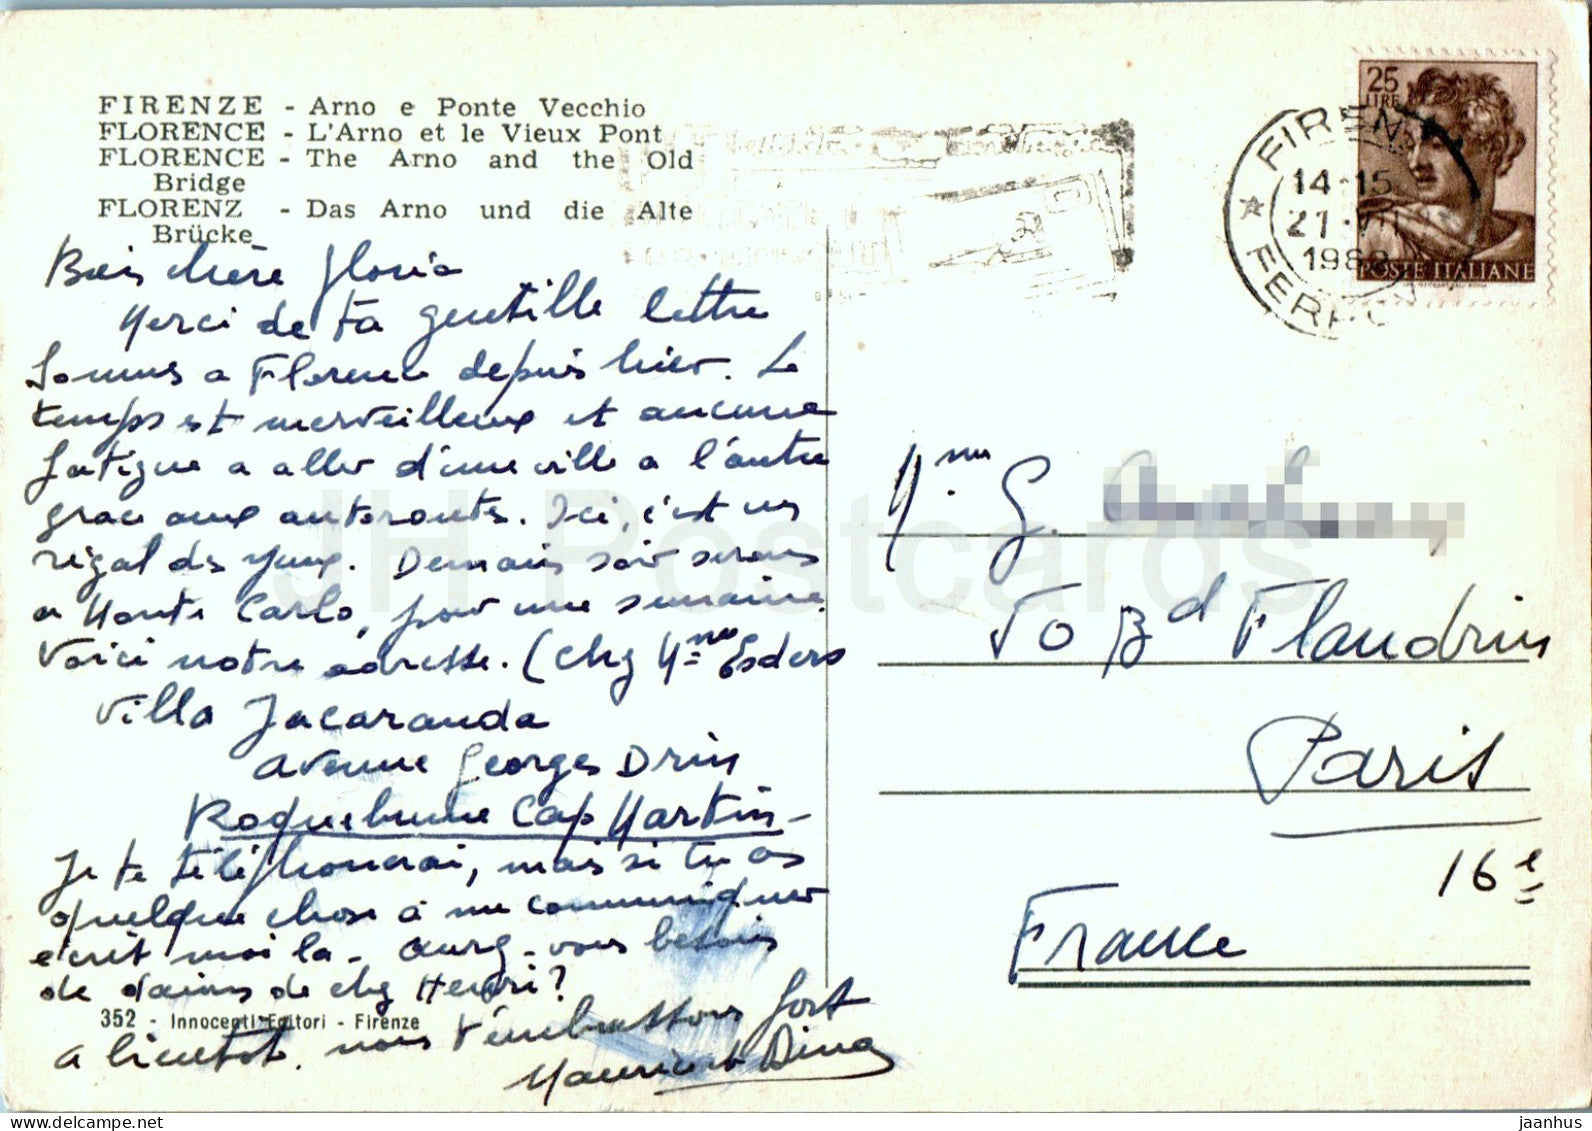 FIRENZE - Arno e Ponte Vecchio
FLORENCE - L'Arno et le Vieux Pont
FLORENCE - The Arno and the Old
Bridge
FLORENZ - Das Arno und die Alte
Brücke
chère Gloria
Merci de ta gentille lettre
Sommes a Florence depuis hier. Le
temps est merveilleux et aucune
fatigue a aller d'une ville a l'autre
grace aux autoroutes. Ici, c'est un
régal des yeux. Demain soir serons
a Monte Carlo, pour une semaine.
Voici notre adresse. (chez Mme Esders
Villa Jacaranda
avenue Georges Drin
Roquebrune Cap Martin -
Je te téléphonerai, mais si tu as
quelque chose à me communiquer
écrit moi la - Aurez-vous besoin
de daims de chez Henri?
352 - Innocenti Editori - Firenze
a bientot. nous t'embrassons fort
Maurice et Dina
25
LIRE
POSTE ITALIANE
FIRENZE
14-15
21·VII
196
FERR
Mme G.
70 Bd Flandrin
Paris
16e
France
JH Postcards
jaanhus
delcampe.net